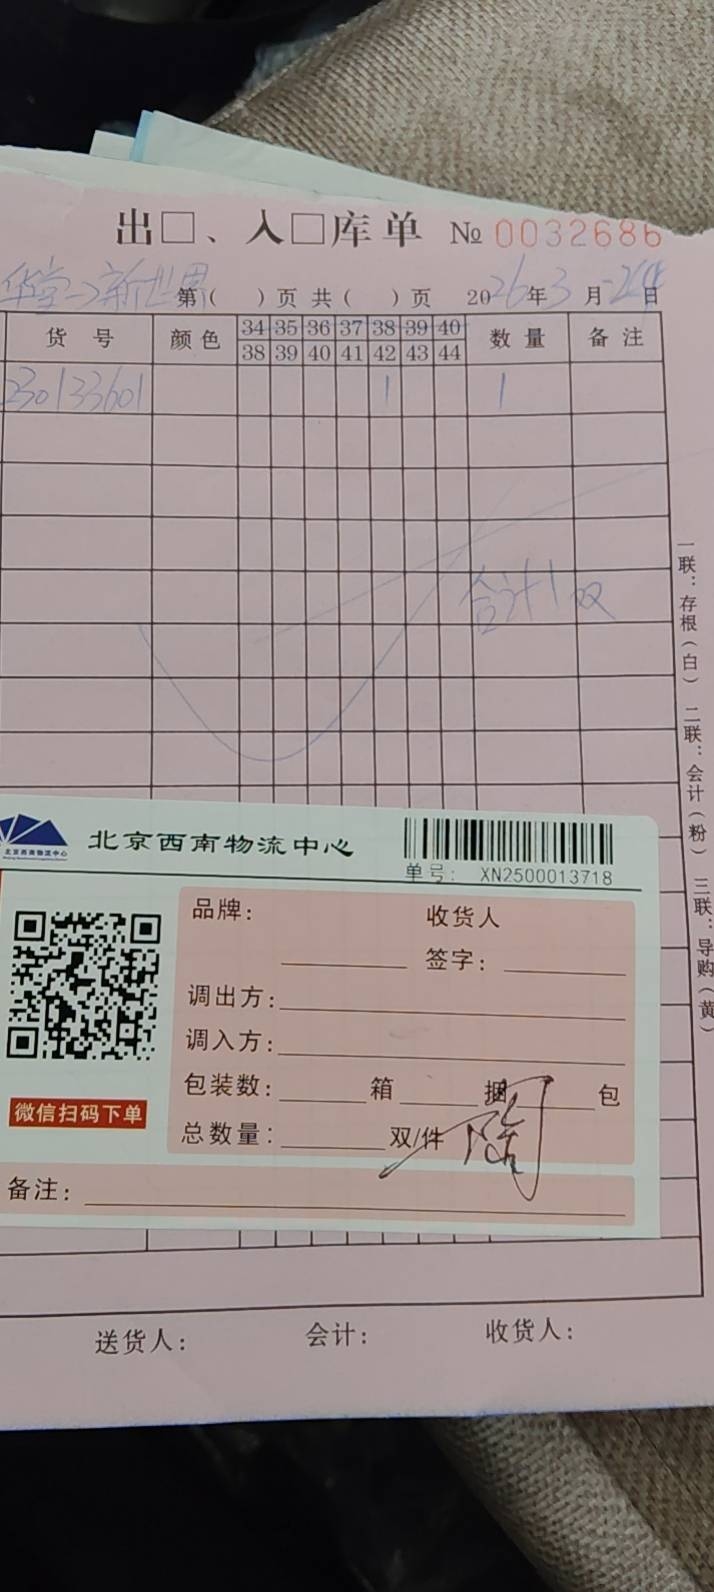 出□、入□库单 № 0032686
华堂→新世界 第( )页 共( )页 2026年3月24日
货号 颜色 34 35 36 37 38 39 40 数量 备注
38 39 40 41 42 43 44
230133601 1 1
合计1双
一联：存根（白） 二联：会计（粉） 三联：导购（黄）
北京西南物流中心
北京西南物流中心
单号： XN2500013718
品牌： 收货人
签字：
调出方：
调入方：
包装数： 箱 捆 包
微信扫码下单
总数量： 双/件
备注：
送货人： 会计： 收货人：